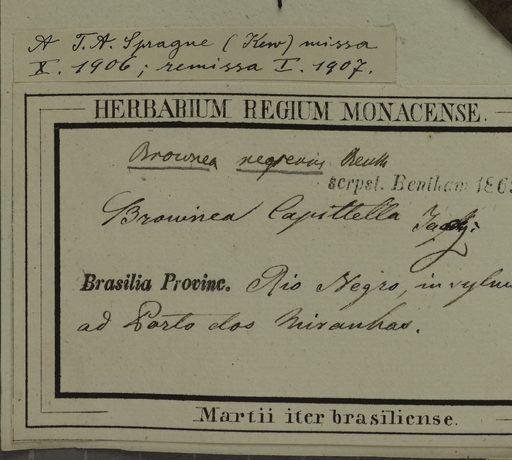 A T. A. Sprague (Kew) missa
X. 1906; remissa I. 1907.
HERBARIUM REGIUM MONACENSE.
Brownea negrensis Benth
scrpst. Bentham 186
Brownea Capitella
Brasilia Provinc. Rio Negro, in sylvis
ad Porto dos Miranhas.
Martii iter brasiliense.